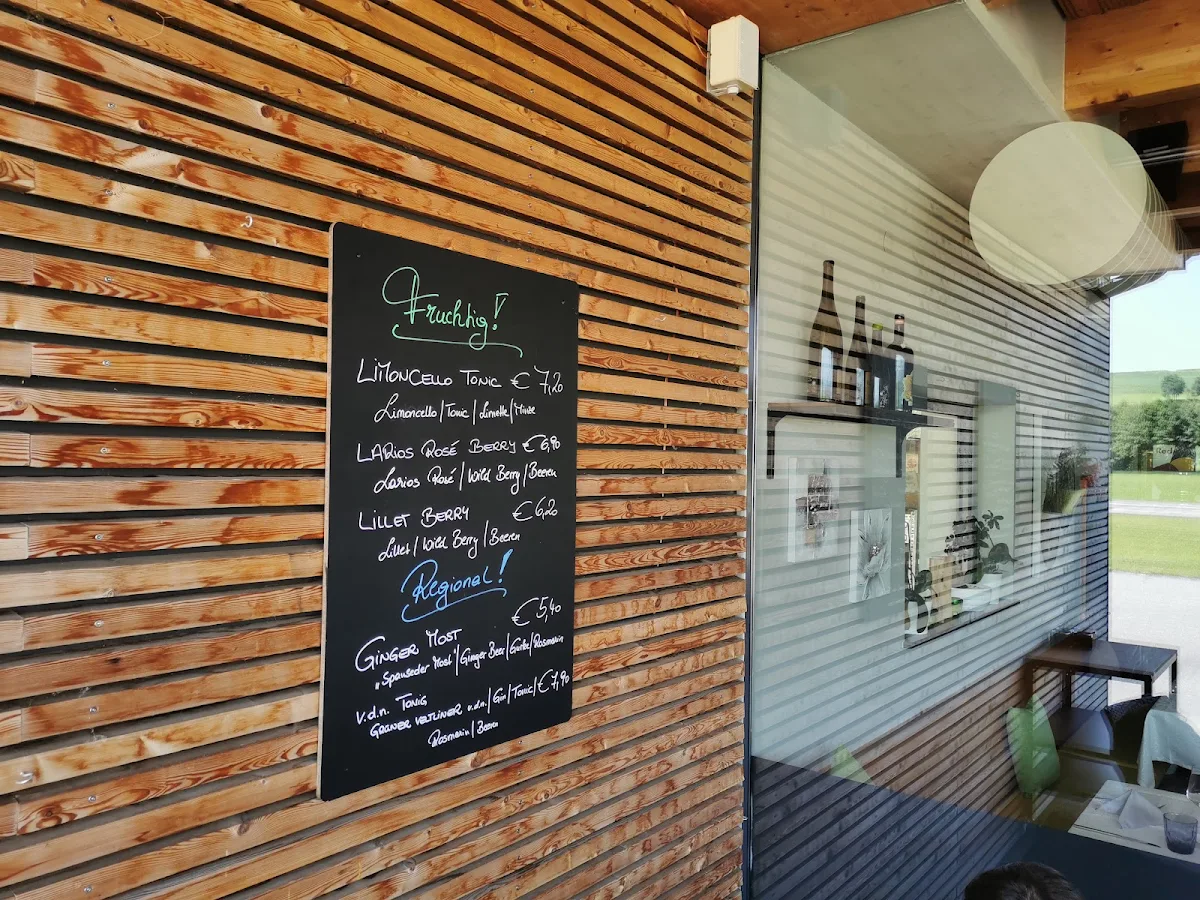 Fruchtig!
LIMONCELLO TONIC € 7,20
Limoncello | Tonic | Limette | Minze
LARIOS ROSÉ BERRY € 6,90
Larios Rosé | Wild Berry | Beeren
LILLET BERRY € 6,20
Lillet | Wild Berry | Beeren
Regional!
€ 5,40
GINGER MOST
„Spanseder Most" | Ginger Beer | Gurke | Rosmarin
v.d.n. TONIC
GRÜNER VELTLINER v.d.n. | Gin | Tonic | € 7,90
Rosmarin | Beeren